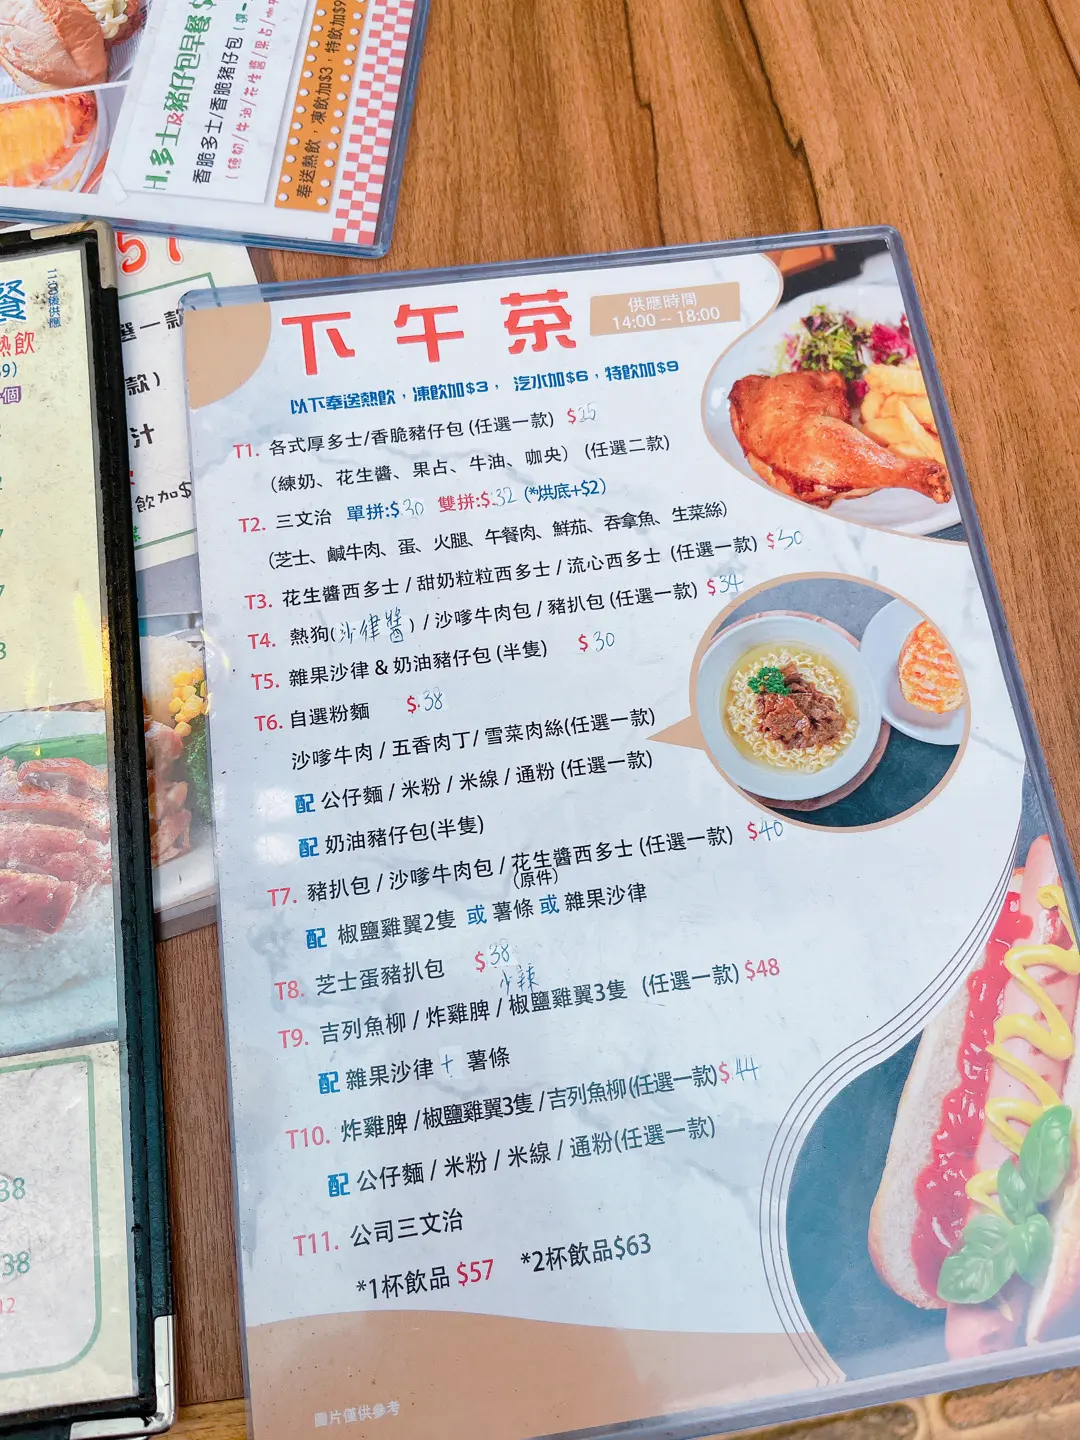 H.多士及豬仔包早餐
香脆多士/香脆豬仔包
奉送熱飲，凍飲加$3，特飲加$9
57
選一款
款）
汁
飲加$
餐
11:00後供應
熱飲
個
38
38
12
下午茶
供應時間
14:00 -- 18:00
以下奉送熱飲，凍飲加$3， 汽水加$6，特飲加$9
T1. 各式厚多士/香脆豬仔包(任選一款) $25
（練奶、花生醬、果占、牛油、咖央）（任選二款）
T2. 三文治 單拼:$30 雙拼:$32 (*烘底+$2)
（芝士、鹹牛肉、蛋、火腿、午餐肉、鮮茄、吞拿魚、生菜絲）
T3. 花生醬西多士 / 甜奶粒粒西多士 / 流心西多士 (任選一款) $30
T4. 熱狗(沙律醬) / 沙嗲牛肉包 / 豬扒包 (任選一款) $34
T5. 雜果沙律 & 奶油豬仔包 (半隻) $30
T6. 自選粉麵 $38
沙嗲牛肉 / 五香肉丁 / 雪菜肉絲(任選一款)
配 公仔麵 / 米粉 / 米線 / 通粉 (任選一款)
配 奶油豬仔包(半隻)
T7. 豬扒包 / 沙嗲牛肉包 / 花生醬西多士 (任選一款) $40
（原件）
配 椒鹽雞翼2隻 或 薯條 或 雜果沙律
T8. 芝士蛋豬扒包 $38
少辣
T9. 吉列魚柳 / 炸雞脾 / 椒鹽雞翼3隻 (任選一款) $48
配 雜果沙律 + 薯條
T10. 炸雞脾 /椒鹽雞翼3隻 /吉列魚柳(任選一款)$44
配 公仔麵 / 米粉 / 米線 / 通粉(任選一款)
T11. 公司三文治
*1杯飲品 $57 *2杯飲品$63
圖片僅供參考